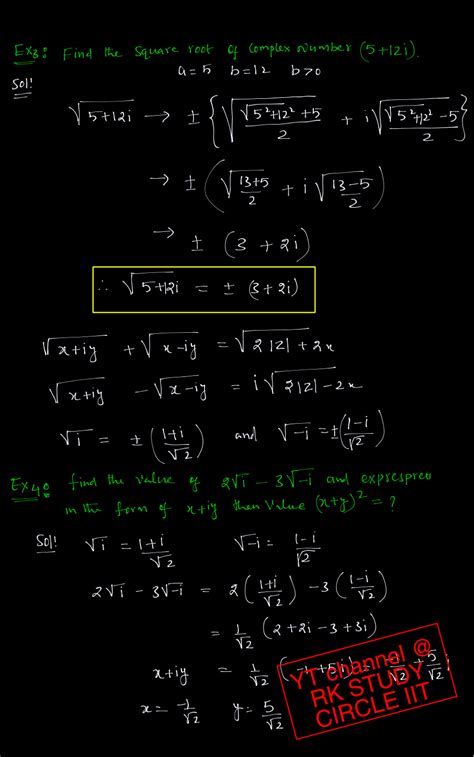 Ex3: Find the square root of complex number (5+12i).
a=5 b=12 b>0
Sol!
√(5+12i) → ± { √((√(5²+12²)+5)/2) + i√((√(5²+12²)-5)/2) }
→ ± ( √((13+5)/2) + i √((13-5)/2) )
→ ± (3 + 2i)
∴ √(5+12i) = ± (3+2i)
√(x+iy) + √(x-iy) = √(2|z| + 2x)
√(x+iy) - √(x-iy) = i√(2|z| - 2x)
√i = ± ((1+i)/√2) and √-i = ± ((1-i)/√2)
Ex4: find the value of 2√i - 3√-i and exprespress
in the form of x+iy then value (x+y)² = ?
Sol! √i = (1+i)/√2 √-i = (1-i)/√2
2√i - 3√-i = 2((1+i)/√2) - 3((1-i)/√2)
= 1/√2 (2+2i-3+3i)
x+iy = 1/√2 (-1+5i) = -1/√2 + 5/√2
x = -1/√2 y = 5/√2
YT channel @
RK STUDY
CIRCLE IIT